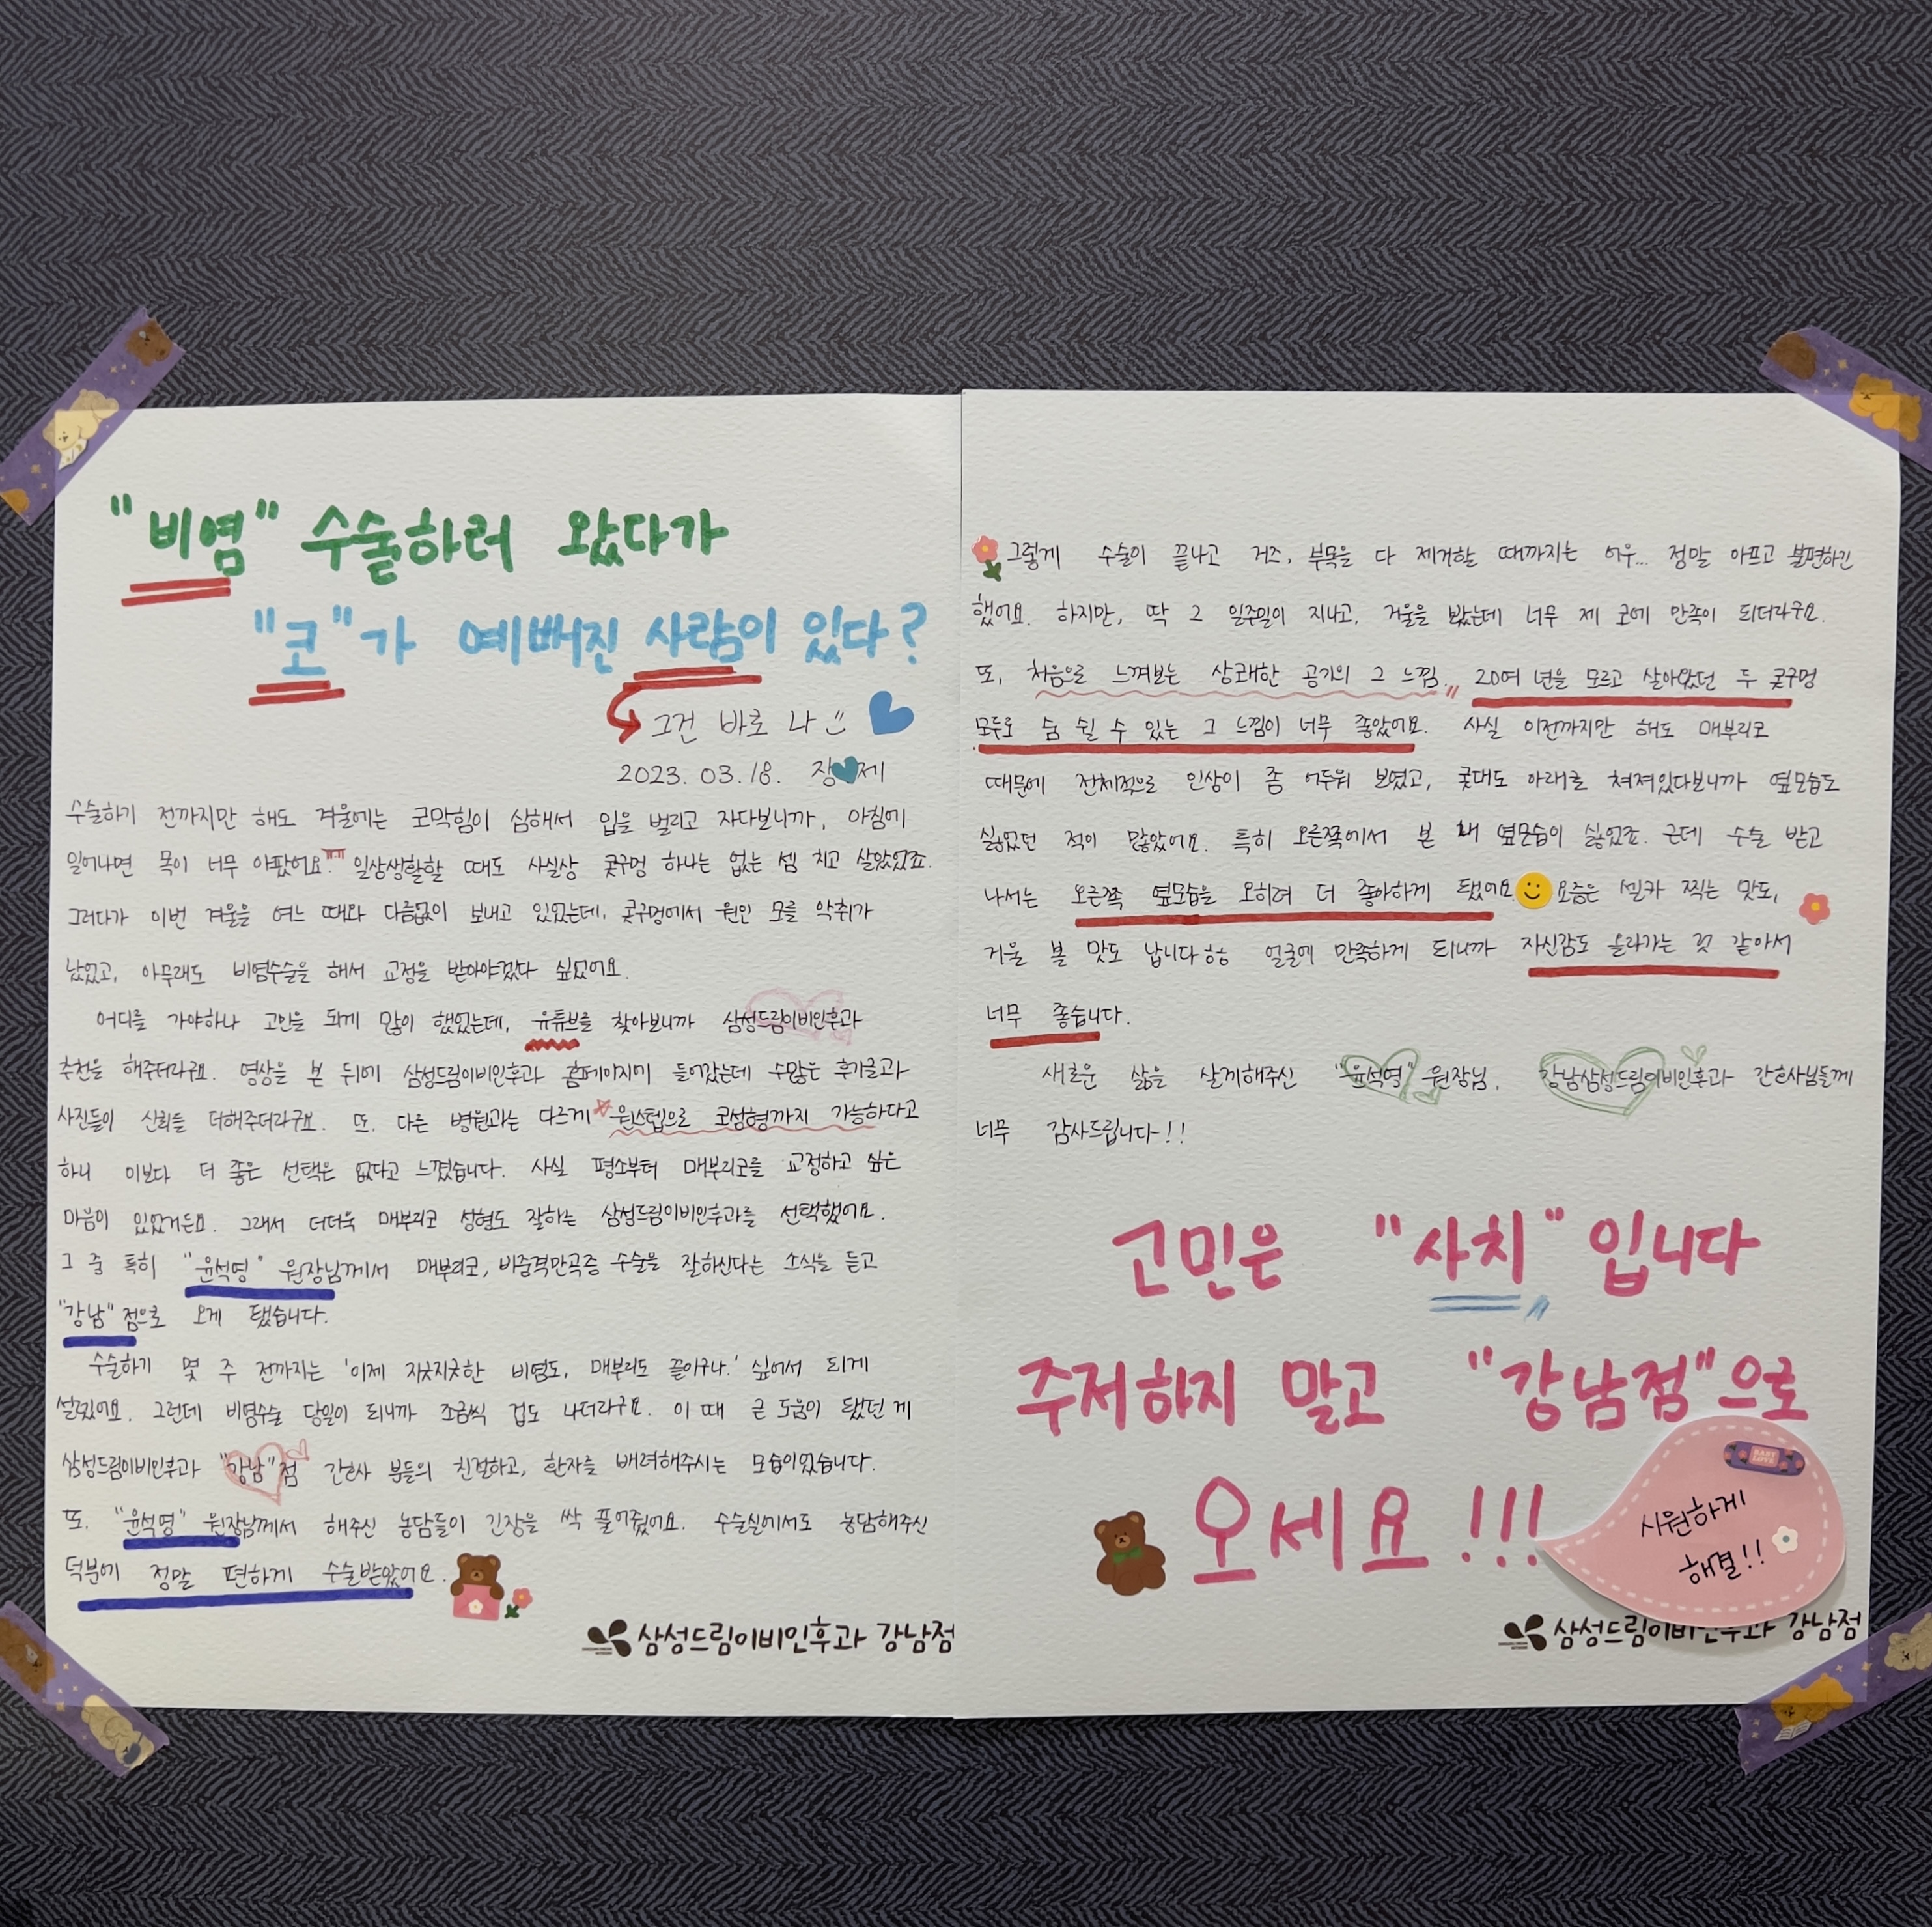 "비염" 수술하러 왔다가
"코"가 예뻐진 사람이 있다?
그건 바로 나
2023. 03. 18. 장 제
수술하기 전까지만 해도 겨울에는 코막힘이 심해서 입을 벌리고 자다보니까, 아침에
일어나면 목이 너무 아팠어요. 일상생활할 때도 사실상 콧구멍 하나는 없는 셈 치고 살았었죠.
그러다가 이번 겨울을 여느 때와 다름없이 보내고 있었는데, 콧구멍에서 원인 모를 악취가
났었고, 아무래도 비염수술을 해서 교정을 받아야겠다 싶었어요.
어디를 가야하나 고민을 되게 많이 했었는데, 유튜브를 찾아보니까 삼성드림이비인후과
추천을 해주더라구요. 영상을 본 뒤에 삼성드림이비인후과 홈페이지에 들어갔는데 수많은 후기글과
사진들이 신뢰를 더해주더라구요. 또, 다른 병원과는 다르게 원스텝으로 코성형까지 가능하다고
하니 이보다 더 좋은 선택은 없다고 느꼈습니다. 사실 평소부터 매부리코를 교정하고 싶은
마음이 있었거든요. 그래서 더더욱 매부리코 성형도 잘하는 삼성드림이비인후과를 선택했어요.
그 중 특히 "윤석영" 원장님께서 매부리코, 비중격만곡증 수술을 잘하신다는 소식을 듣고
"강남"점으로 오게 됐습니다.
수술하기 몇 주 전까지는 '이제 지긋지긋한 비염도, 매부리도 끝이구나.' 싶어서 되게
설렜어요. 그런데 비염수술 당일이 되니까 조금씩 겁도 나더라구요. 이 때 큰 도움이 됐던 게
삼성드림이비인후과 "강남"점 간호사 분들의 친절하고, 환자를 배려해주시는 모습이었습니다.
또, "윤석영" 원장님께서 해주신 농담들이 긴장을 싹 풀어줬어요. 수술실에서도 농담해주신
덕분에 정말 편하게 수술받았어요.
삼성드림이비인후과 강남점
그렇게 수술이 끝나고 거즈, 부목을 다 제거할 때까지는 어우... 정말 아프고 불편하긴
했어요. 하지만, 딱 2 일주일이 지나고, 거울을 봤는데 너무 제 코에 만족이 되더라구요.
또, 처음으로 느껴보는 상쾌한 공기의 그 느낌.. 20여 년을 모르고 살아왔던 두 콧구멍
모두로 숨 쉴 수 있는 그 느낌이 너무 좋았어요. 사실 이전까지만 해도 매부리코
때문에 전체적으로 인상이 좀 어두워 보였고, 콧대도 아래로 쳐져있다보니까 옆모습도
싫었던 적이 많았어요. 특히 오른쪽에서 본 제 옆모습이 싫었죠. 근데 수술 받고
나서는 오른쪽 옆모습을 오히려 더 좋아하게 됐어요 요즘은 셀카 찍는 맛도,
거울 볼 맛도 납니다ㅎㅎ 얼굴에 만족하게 되니까 자신감도 올라가는 것 같아서
너무 좋습니다.
새로운 삶을 살게해주신 "윤석영" 원장님, 강남삼성드림이비인후과 간호사님들께
너무 감사드립니다!!
고민은 "사치"입니다
주저하지 말고 "강남점"으로
오세요!!!
BABY LOVE
시원하게
해결!!
삼성드림이비인후과 강남점